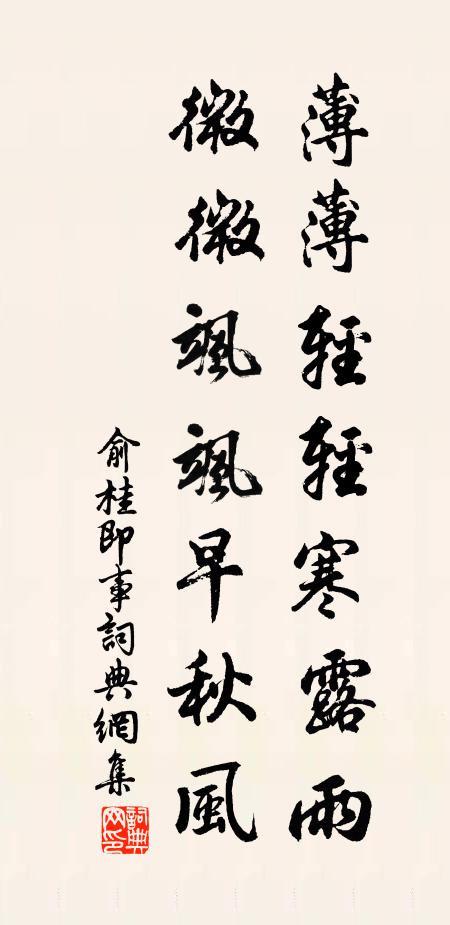 薄薄輕輕寒露雨
微微颯颯早秋風
俞桂即事詞典網集
詞典網印